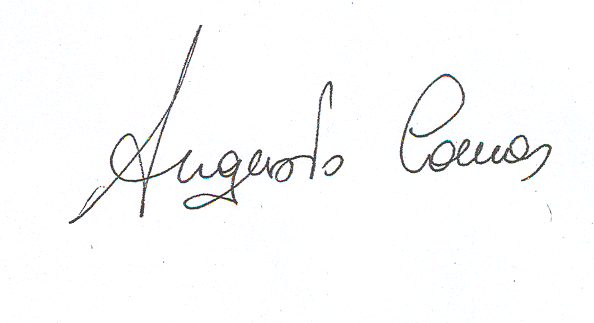 Augusto Comas